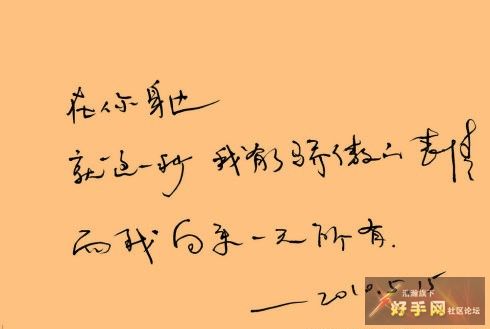 在你身边
就这一秒 我有了骄傲的表情
而我向来一无所有.
—2010.5.15
汇瀚旗下
好手网社区论坛